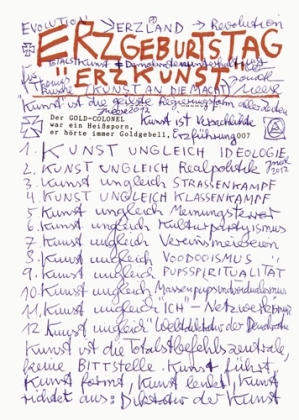 EVOLUTION > ERZLAND > Revolution
ERZGEBURTSTAG
Totalstkunst = Demokratenunterhaltung
"ERZKUNST"
für Thomas Rusche
KUNST AN DIE MACHT
"Kunst" ist die geilste Regierungsform aller Zeiten
Der GOLD-COLONEL
war ein Heißsporn,
er hörte immer Goldgebell,
Kunst ist Verschlüsselte
Erzführung007
1. KUNST UNGLEICH IDEOLOGIE
2. KUNST UNGLEICH Realpolitik
3. Kunst ungleich STRASSENKAMPF
4. KUNST UNGLEICH KLASSENKAMPF
5 Kunst ungleich Meinungsterror
6. Kunst ungleich Kulturparteyismus
7 Kunst ungleich Vereinsmeiereien
8 Kunst ungleich VOODOOISMUS
9. Kunst ungleich PUPSSPIRITUALITÄT
10 Kunst ungleich Massenpupsindividualismus
11. Kunst ungleich "ICH" - Netzwerkerei
12 Kunst ungleich Weltdiktatur der Demokratie
Kunst ist die Totalstbefehlszentrale,
keine BITTSTELLE. Kunst führt,
Kunst formt, Kunst lenkt, Kunst
richtet aus: Diktatur der Kunst